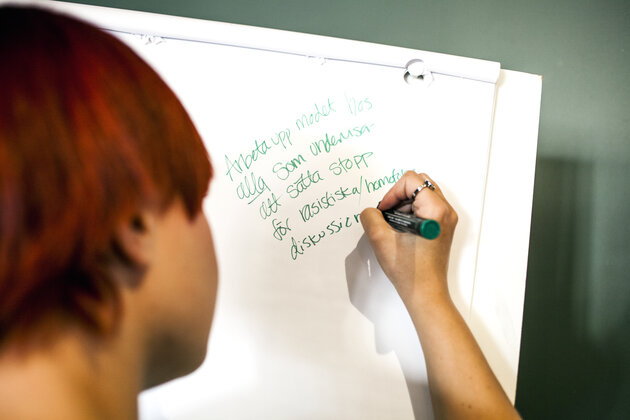 Arbeta upp modet hos
alla som undervisar
att sätta stopp
för rasistiska/homofo
diskussion